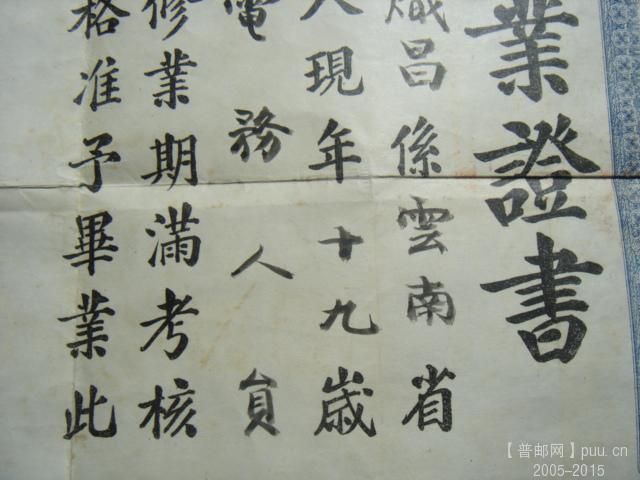 業證書
熾昌係雲南省
人現年十九歲
電務人員
修業期滿考核
格准予畢業此
【普邮网】puu.cn
2005-2015